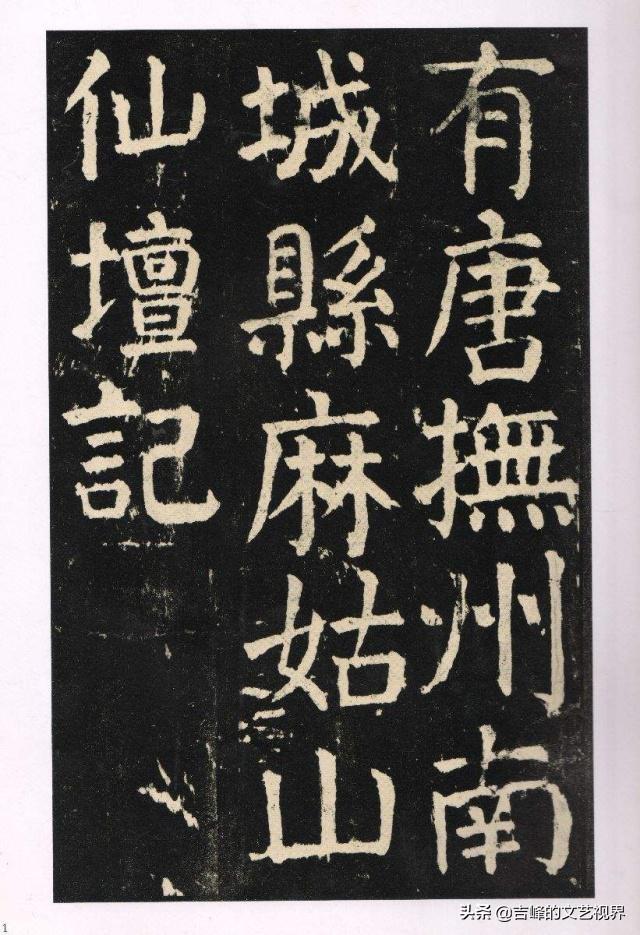 有唐撫州南
城縣麻姑山
仙壇記
1
头条 @吉峰的文艺视界